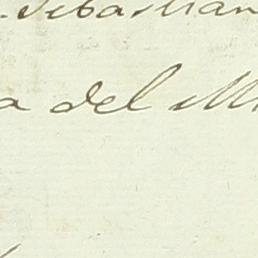 Sebastian
a del M